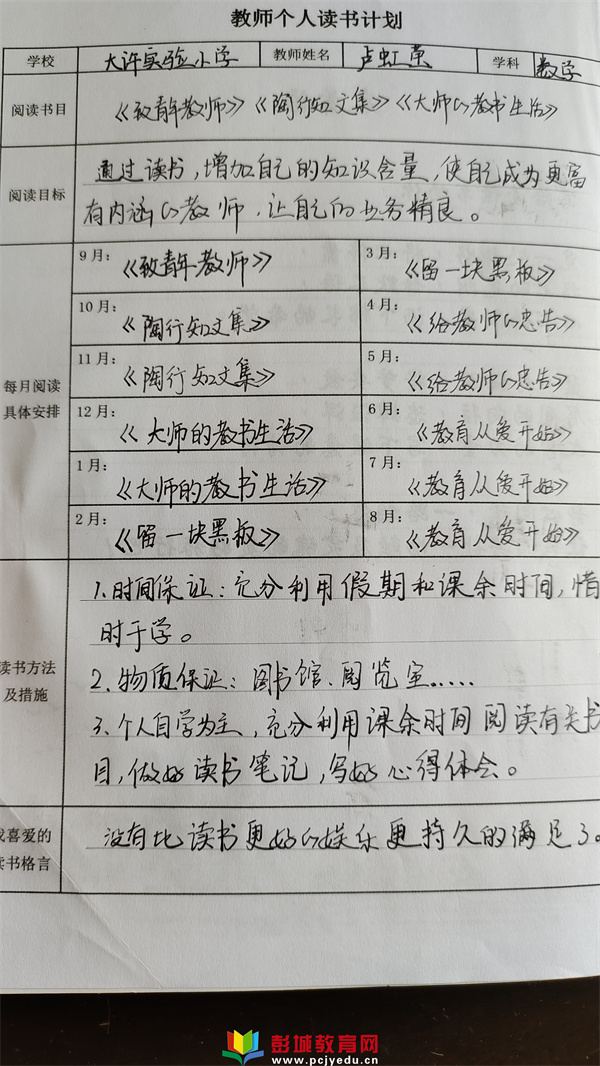 教师个人读书计划
学校 大许实验小学 教师姓名 卢虹 学科 数学
阅读书目 《致青年教师》《陶行知文集》《大师的教书生活》
阅读目标 通过读书，增加自己的知识含量，使自己成为更富
有内涵的教师，让自己的业务精良。
每月阅读
具体安排
9月：《致青年教师》 3月：《留一块黑板》
10月：《陶行知文集》 4月：《给教师的忠告》
11月：《陶行知文集》 5月：《给教师的忠告》
12月：《大师的教书生活》 6月：《教育从爱开始》
1月：《大师的教书生活》 7月：《教育从爱开始》
2月：《留一块黑板》 8月：《教育从爱开始》
读书方法
及措施
1.时间保证：充分利用假期和课余时间，惜
时于学。
2.物质保证：图书馆、阅览室……
3.个人自学为主，充分利用课余时间阅读有关书
目，做好读书笔记，写好心得体会。
我喜爱的
读书格言
没有比读书更好的娱乐更持久的满足了。
彭城教育网
www.pcjyedu.cn